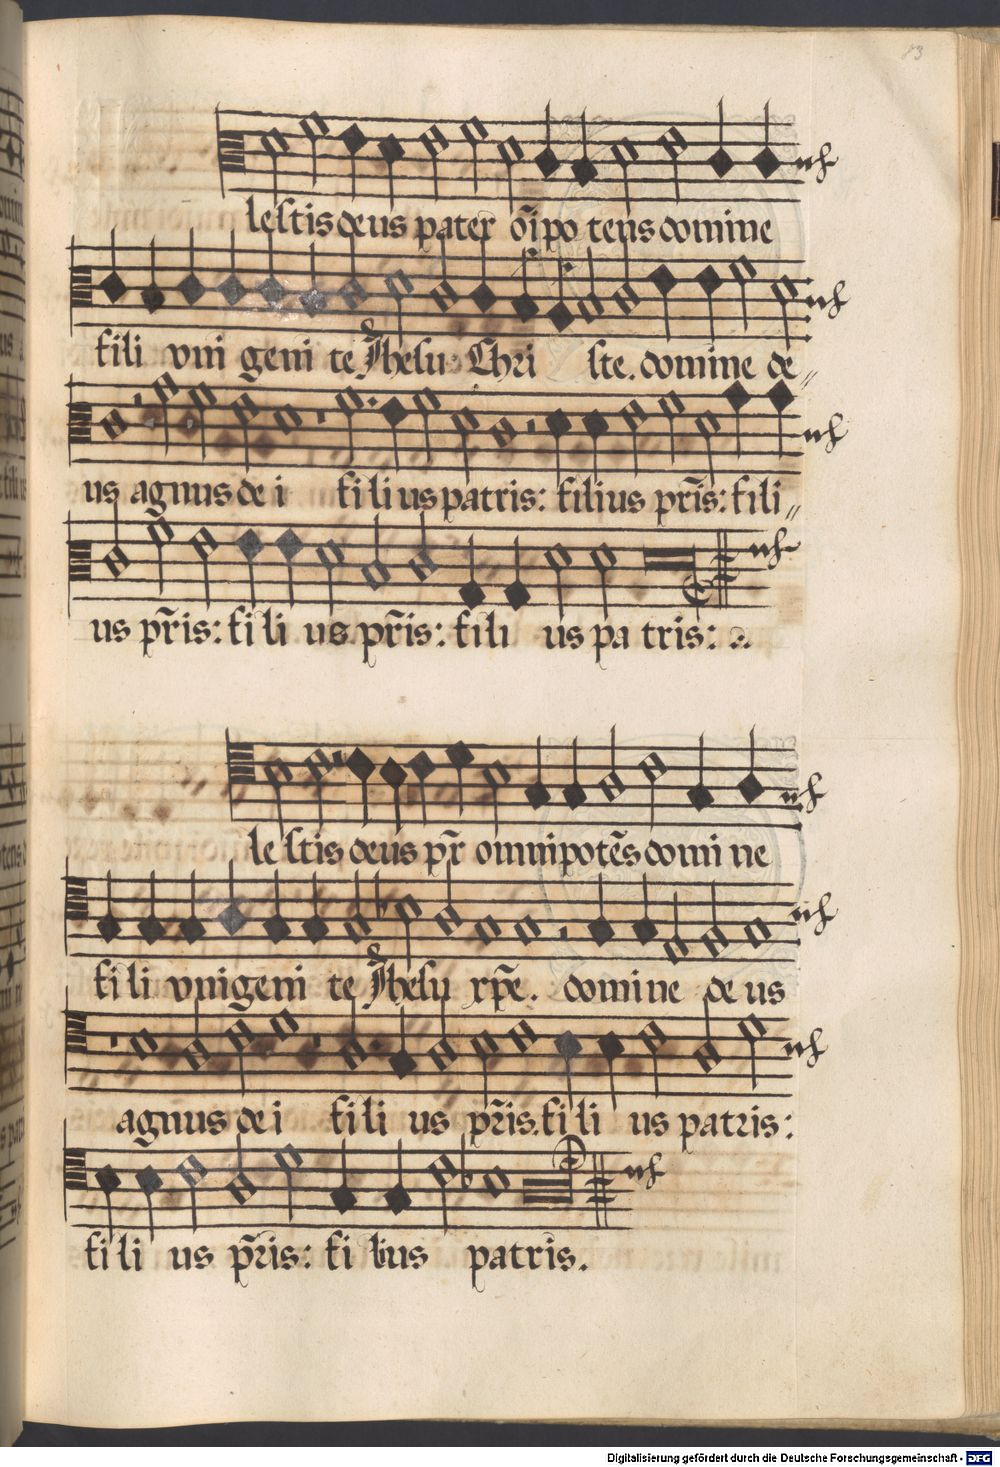 83
lestis deus pater oı̃po tens domine
fili vni geni te Jhesu Chri ste. domine de„
us agnus de i fi li us patris: filius pr̃is: fili„
us pr̃is: fi li us pr̃is: fili us pa tris:
le stis deus pr̃ omnipotẽs domi ne
fi li vnigeni te Jhesu xp̃e. domine de us
agnus de i fi li us pr̃is. fi li us patris:
fi li us pr̃is: fi lius patris.
Digitalisierung gefördert durch die Deutsche Forschungsgemeinschaft - DFG